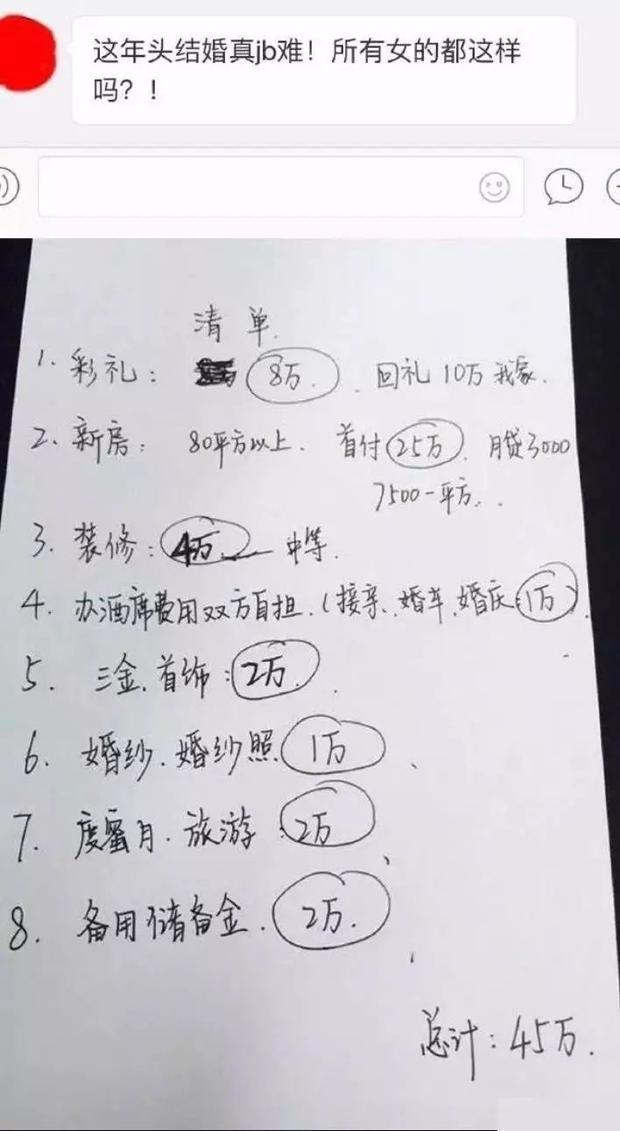 这年头结婚真jb难！所有女的都这样
吗？！
清单.
1. 彩礼： 8万. 回礼10万我家.
2. 新房： 80平方以上. 首付25万. 月贷3000
7500一平方.
3. 装修：4万 中等.
4. 办酒席费用双方自担.（接亲、婚车、婚庆：1万）.
5. 三金.首饰：2万.
6. 婚纱.婚纱照 1万、
7. 度蜜月.旅游：2万
8. 备用储备金. 2万.
总计：45万.